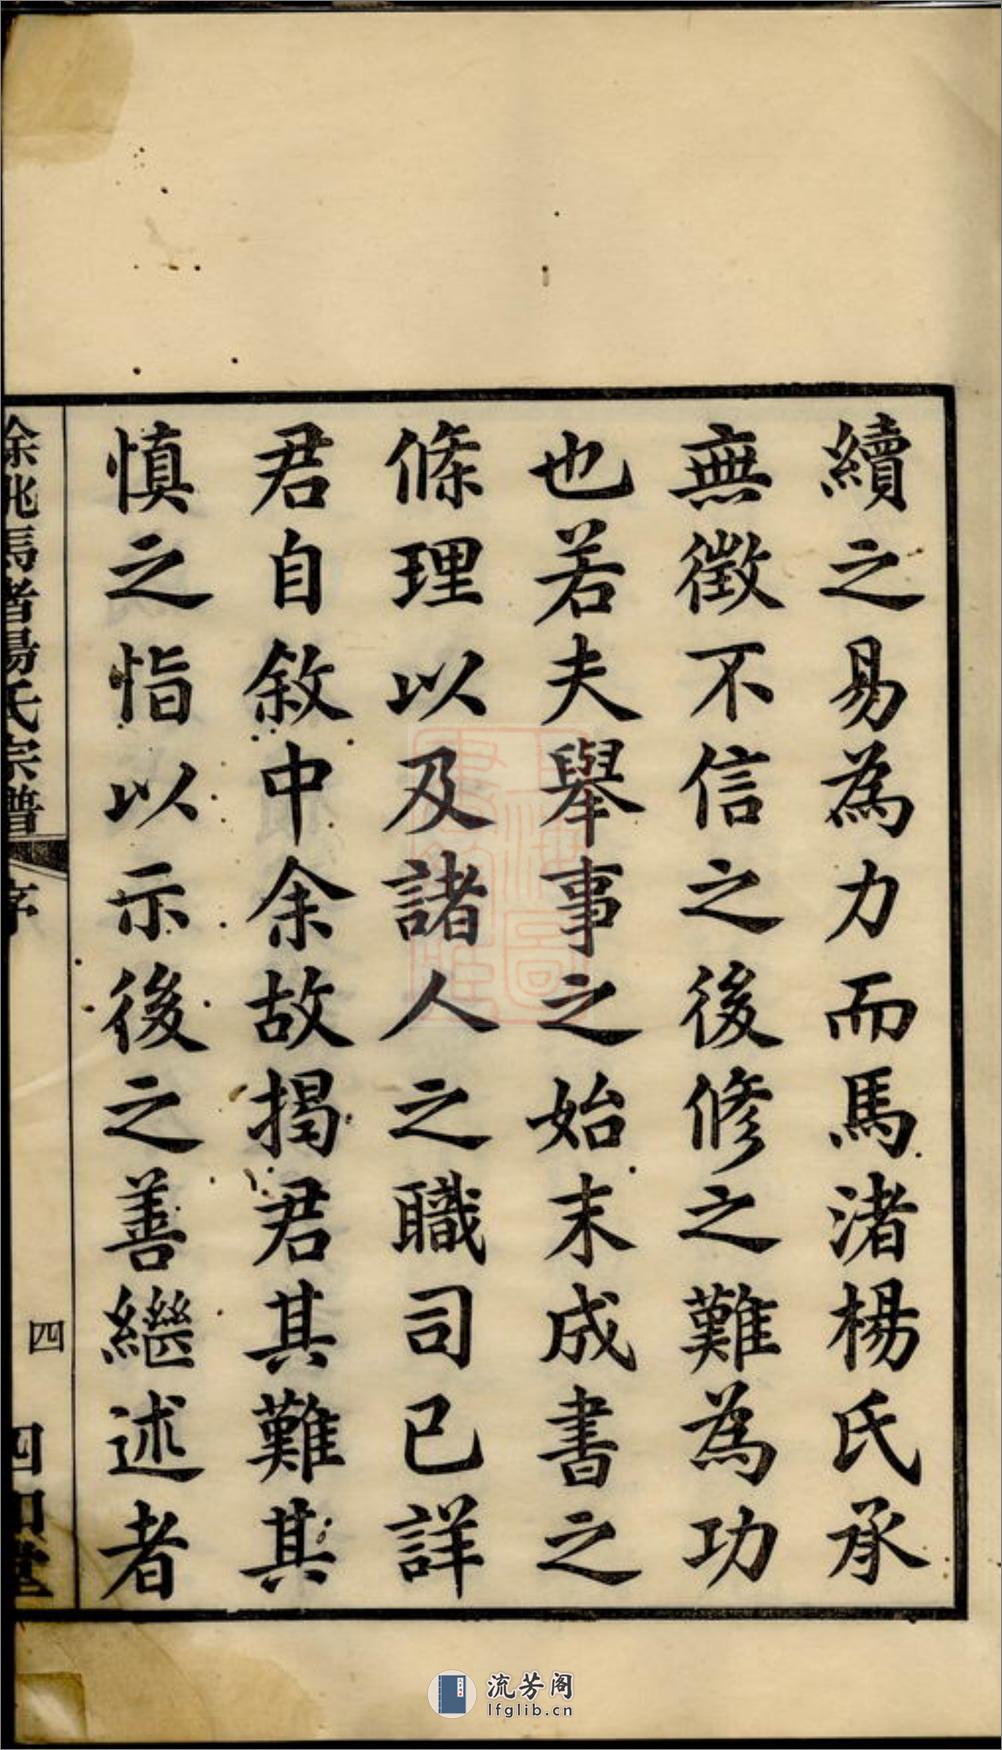 續之易為力而馬渚楊氏承
無徵不信之後修之難為功
也若夫舉事之始末成書之
條理以及諸人之職司已詳
君自敘中余故揭君其難其
慎之恉以示後之善繼述者
餘姚馬渚楊氏宗譜
序
四
四知堂
流芳阁
lfglib.cn